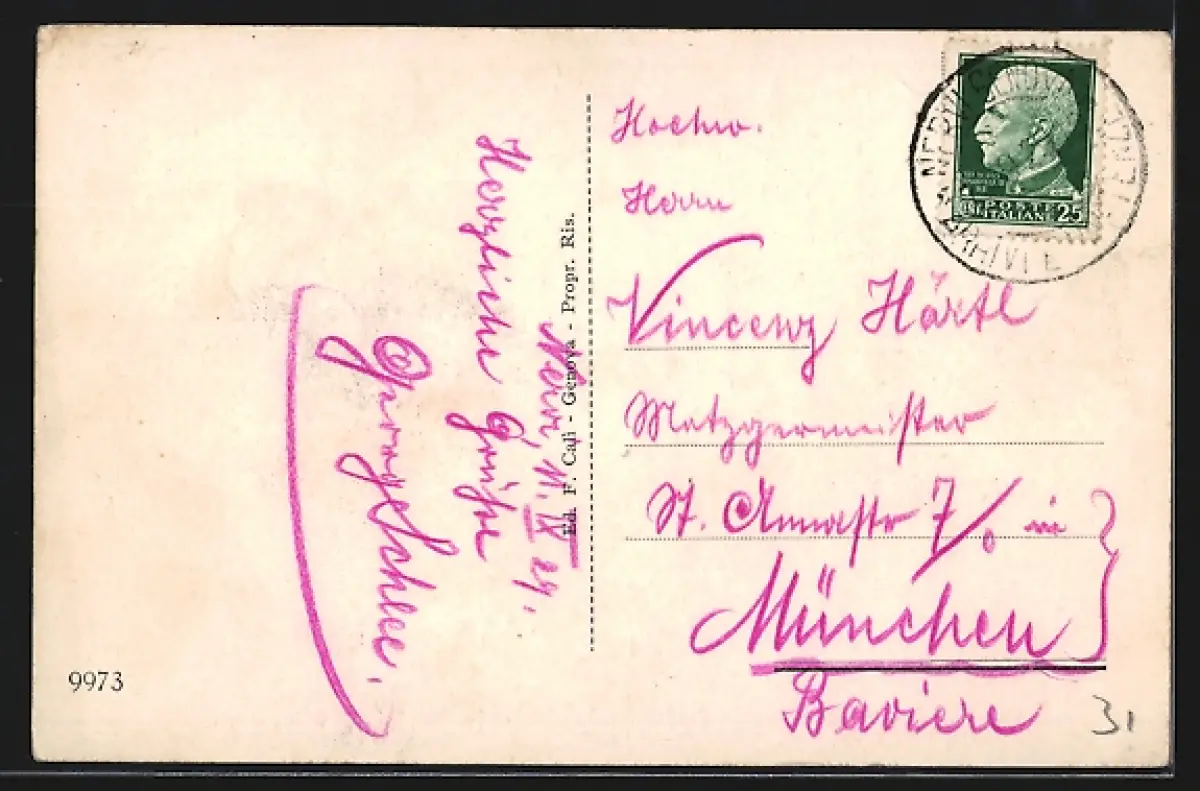 Nervi, 11. IX 29.
Herzliche Grüße
Georg Schlee.
Ed. F. Calì - Genova - Propr. Ris.
Hochw.
Herrn
Vincenz Härtl
Metzgermeister
St. Annastr 7/0 in
München
Baviere
POSTE
ITALIANE 25
NERVI GENOVA
9973
31